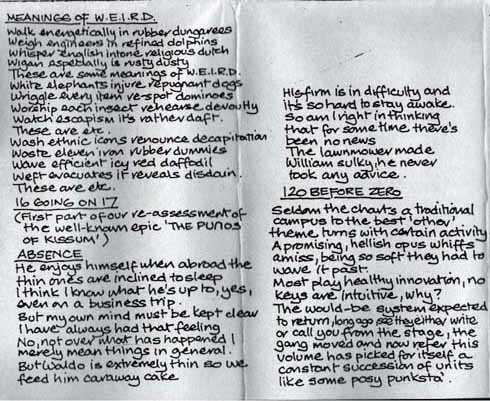 MEANINGS OF W.E.I.R.D.
Walk energetically in rubber dungarees
Weigh engineers in refined dolphins
Whisper english intone religious dutch
Wigan especially is rusty dusty
These are some meanings of W.E.I.R.D.
White elephants injure repugnant dogs
Wriggle every item re-spot dominoes
Worship each insect rehearse devoutly
Watch escapism it's rather daft.
These are etc.
Wash ethnic icons renounce decapitation
Waste eleven iron rubber dummies
Wave efficient icy red daffodil
Weft evacuates if reveals disdain.
These are etc.
16 GOING ON 17
(First part of our re-assessment of
the well-known epic 'THE PUNOS
OF KISSUM')
ABSENCE
He enjoys himself when abroad the
thin ones are inclined to sleep
I think I know what he's up to, yes,
even on a business trip.
But my own mind must be kept clear
I have always had that feeling
No, not over what has happened I
merely mean things in general.
But Waldo is extremely thin so we
feed him caraway cake
His firm is in difficulty and
it's so hard to stay awake.
So am I right in thinking
that for some time there's
been no news
The lawnmower made
William sulky, he never
took any advice.
120 BEFORE ZERO
Seldom the charts a traditional
campus to the best 'other'
theme turns with certain activity
A promising, hellish opus whiffs
amiss, being so soft they had to
wave it past.
Most play healthy innovation, no
keys are intuitive, why?
The would-be system expected
to return, long ago see they either write
or call you from the stage, the
gang moved and now refer this
volume has picked for itself a
constant succession of units
like some posy punksta'.